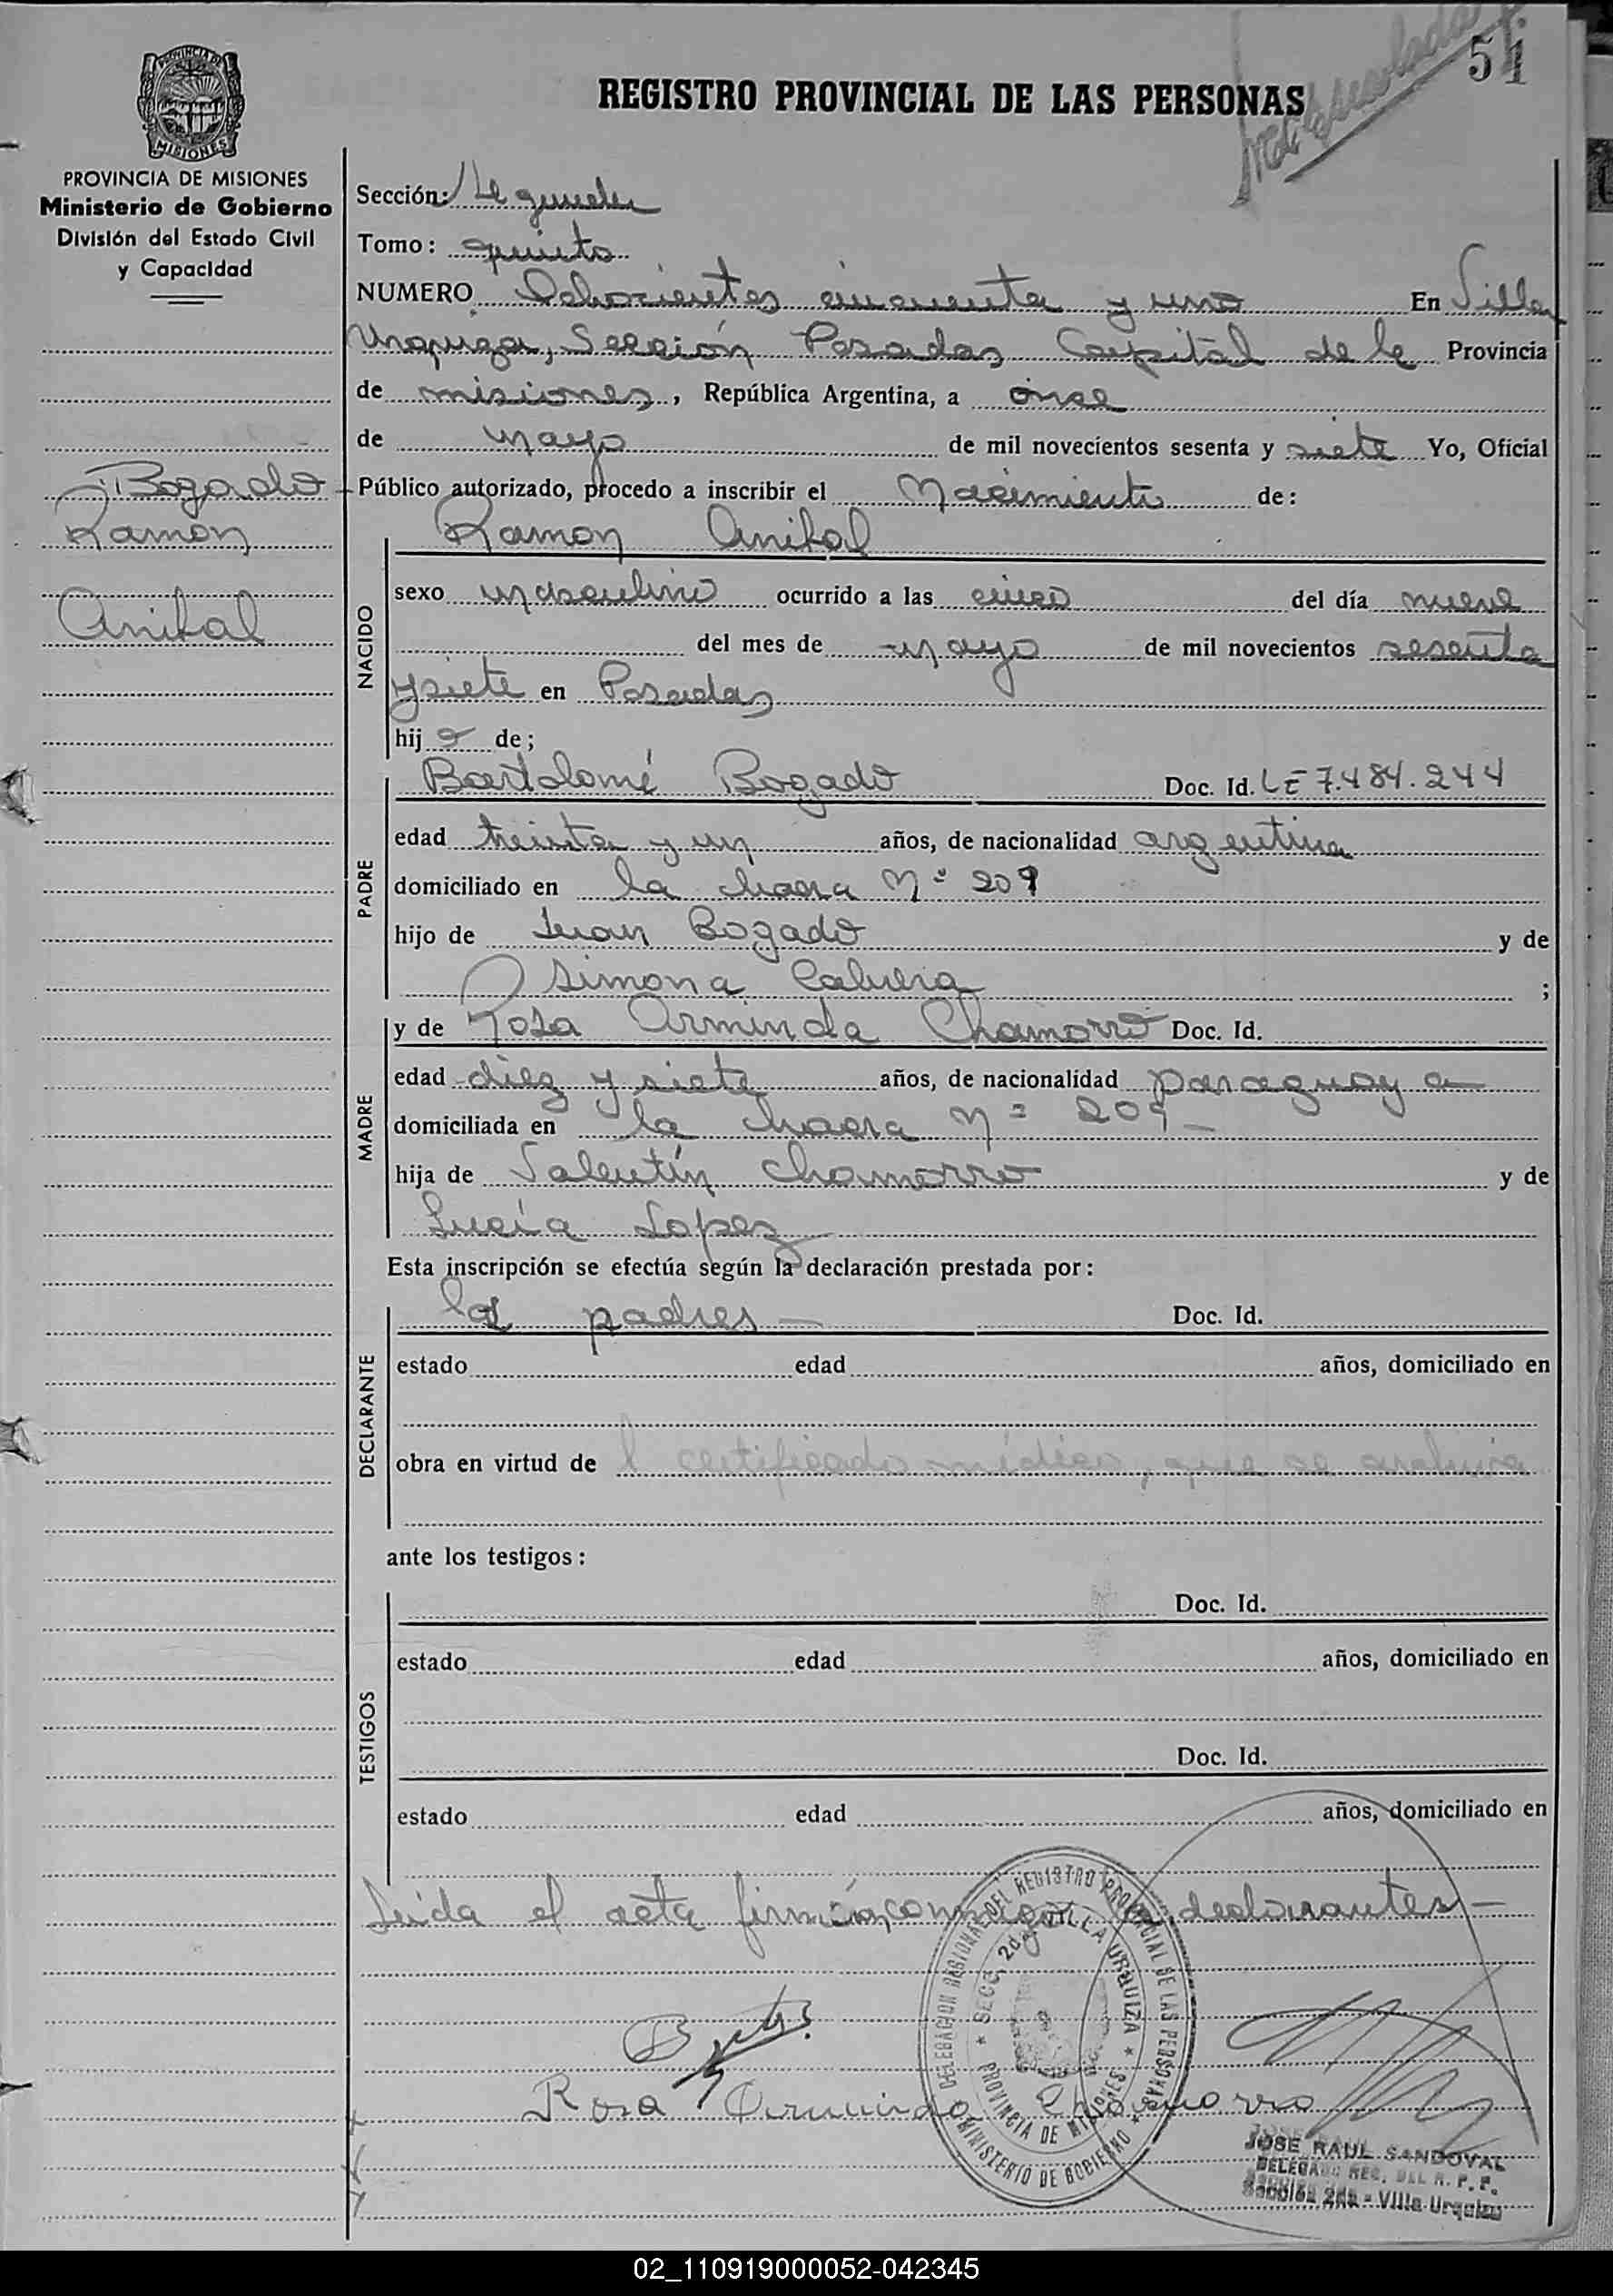 51
REGISTRO PROVINCIAL DE LAS PERSONAS
PROVINCIA DE MISIONES
MISIONES
PROVINCIA DE MISIONES
Ministerio de Gobierno
División del Estado Civil
y Capacidad
Bogado
Ramon
Anibal
Sección: Segunda
Tomo: quinto
NUMERO Ochocientos cincuenta y uno En Villa
Urquiza, Sección Posadas Capital de la Provincia
de misiones, República Argentina, a once
de mayo de mil novecientos sesenta y siete Yo, Oficial
Público autorizado, procedo a inscribir el Nacimiento de:
Ramon Anibal
NACIDO
sexo masculino ocurrido a las cinco del día nueve
del mes de mayo de mil novecientos sesenta
y siete en Posadas
hijo de;
PADRE
Bartolomé Bogado Doc. Id. LE 7.484.244
edad treinta y un años, de nacionalidad argentina
domiciliado en la chacra Nº 209
hijo de Juan Bogado y de
Simona Cabrera ;
MADRE
y de Rosa Arminda Chamorro Doc. Id.
edad diez y siete años, de nacionalidad paraguaya
domiciliada en la chacra Nº 209 -
hija de Valentín Chamorro y de
Lucía Lopez
Esta inscripción se efectúa según la declaración prestada por:
DECLARANTE
los padres - Doc. Id.
estado edad años, domiciliado en
obra en virtud de l certificado médico, que se archiva
ante los testigos:
TESTIGOS
Doc. Id.
estado edad años, domiciliado en
Doc. Id.
estado edad años, domiciliado en
Leída el acta firman conmigo los declarantes -
DELEGACION REGIONAL DEL REGISTRO PROVINCIAL DE LAS PERSONAS
MINISTERIO DE GOBIERNO
* SECC. 2da. VILLA URQUIZA *
PROVINCIA DE MISIONES
Rosa Arminda Chamorro
JOSE RAUL SANDOVAL
DELEGADO REG. DEL R. P. P.
Sección 2da - Villa Urquiza
02_110919000052-042345